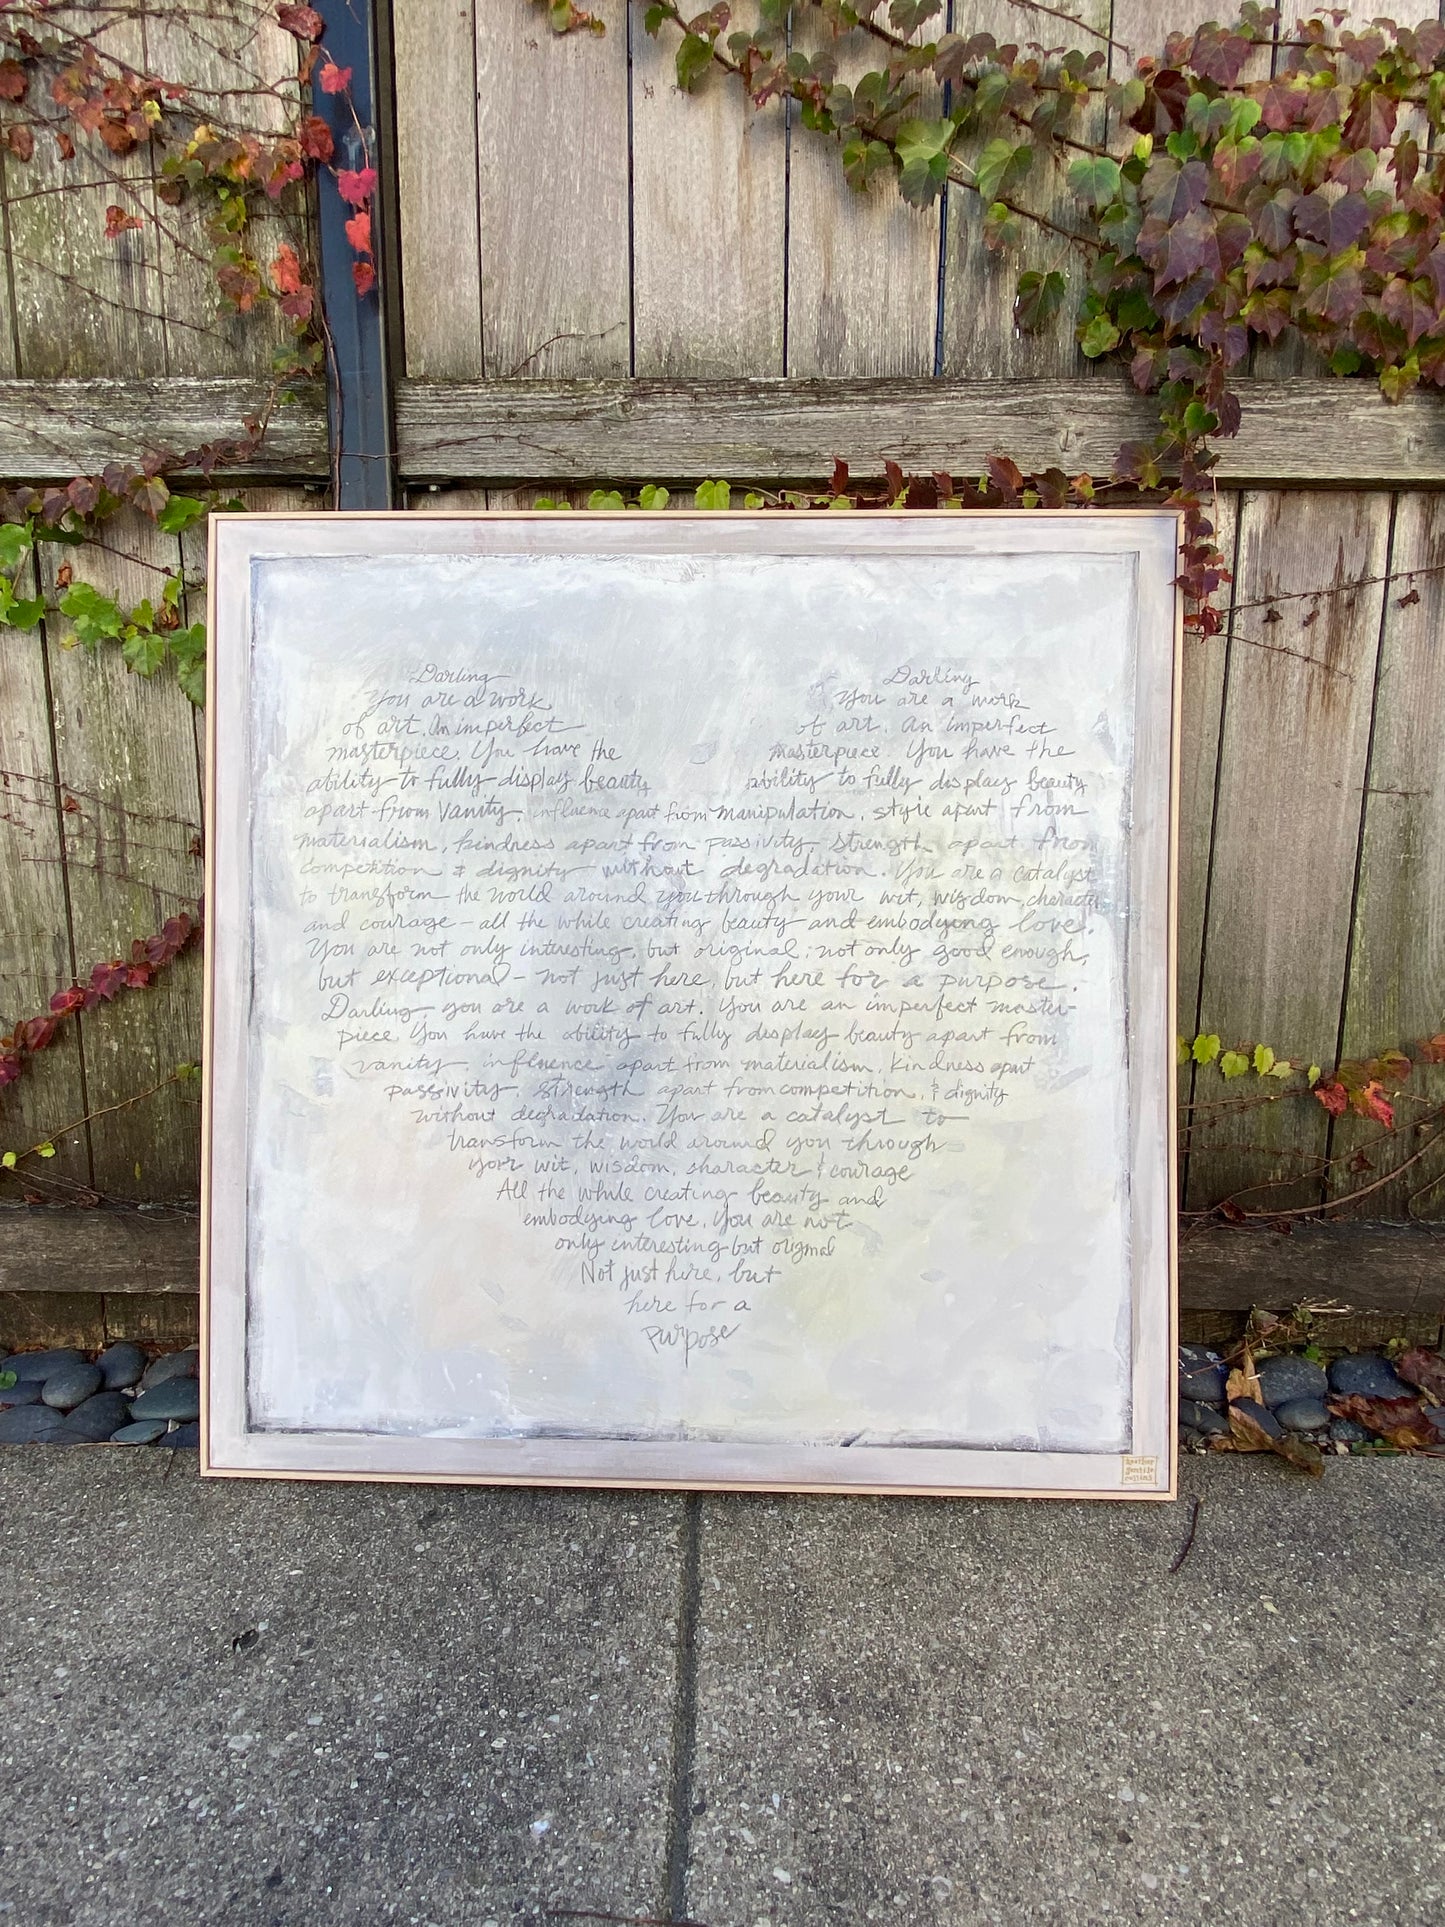 Darling
You are a work
of art. An imperfect
masterpiece. You have the
ability to fully display beauty
Darling
You are a work
of art. An imperfect
masterpiece. You have the
ability to fully display beauty
apart from Vanity, influence apart from manipulation, style apart from
materialism, kindness apart from passivity, strength apart from
competition & dignity without degradation. You are a catalyst
to transform the world around you through your wit, wisdom, character
and courage - all the while creating beauty and embodying love.
You are not only interesting, but original, not only good enough,
but exceptional - not just here, but here for a purpose.
Darling, you are a work of art. You are an imperfect master-
piece. You have the ability to fully display beauty apart from
vanity, influence apart from materialism, kindness apart
passivity, strength apart from competition, & dignity
without degradation. You are a catalyst to
transform the world around you through
your wit, wisdom, character & courage
All the while creating beauty and
embodying love. You are not
only interesting but original
Not just here, but
here for a
purpose
heather
gentile
collins